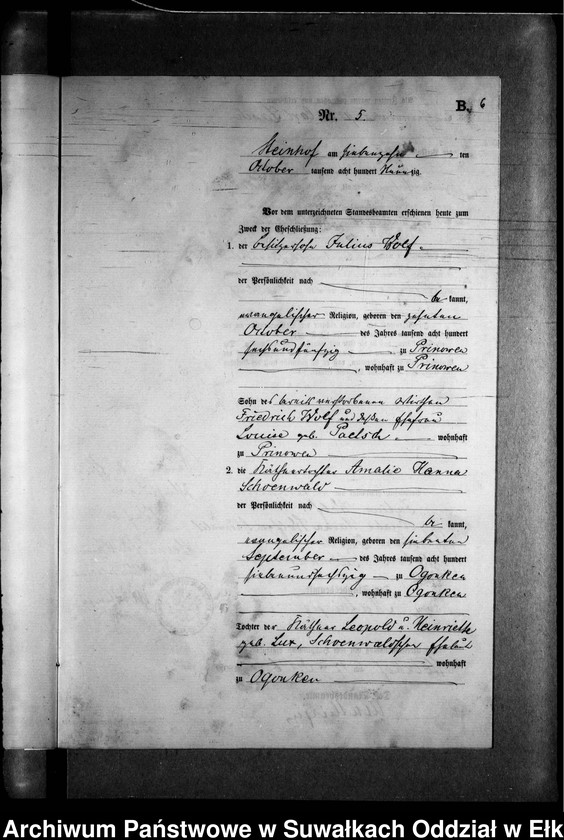 B. 6
Nr. 5.
Steinhof am siebenzehn ten
October tausend acht hundert Neunzig.
Vor dem unterzeichneten Standesbeamten erschienen heute zum
Zweck der Eheschließung:
1. der Besitzersohn Julius Wolf
der Persönlichkeit nach
be kannt,
evangelischer Religion, geboren den zehnten
October des Jahres tausend acht hundert
sechsundfünfzig zu Prinowen
, wohnhaft zu Prinowen
Sohn des bereits verstorbenen Wirthen
Friedrich Wolf und dessen Ehefrau
Louise geb. Paelsch wohnhaft
zu Prinowen
2. die Käthnertochter Amalie Hanna
Schoenwald
der Persönlichkeit nach
be kannt,
evangelischer Religion, geboren den siebenten
September des Jahres tausend acht hundert
siebenundsechszig zu Ogonken
, wohnhaft zu Ogonken
Tochter der Käthner Leopold u. Heinriette
geb. Lux, Schoenwaldschen Eheleute
wohnhaft
zu Ogonken
Archiwum Państwowe w Suwałkach Oddział w Ełk